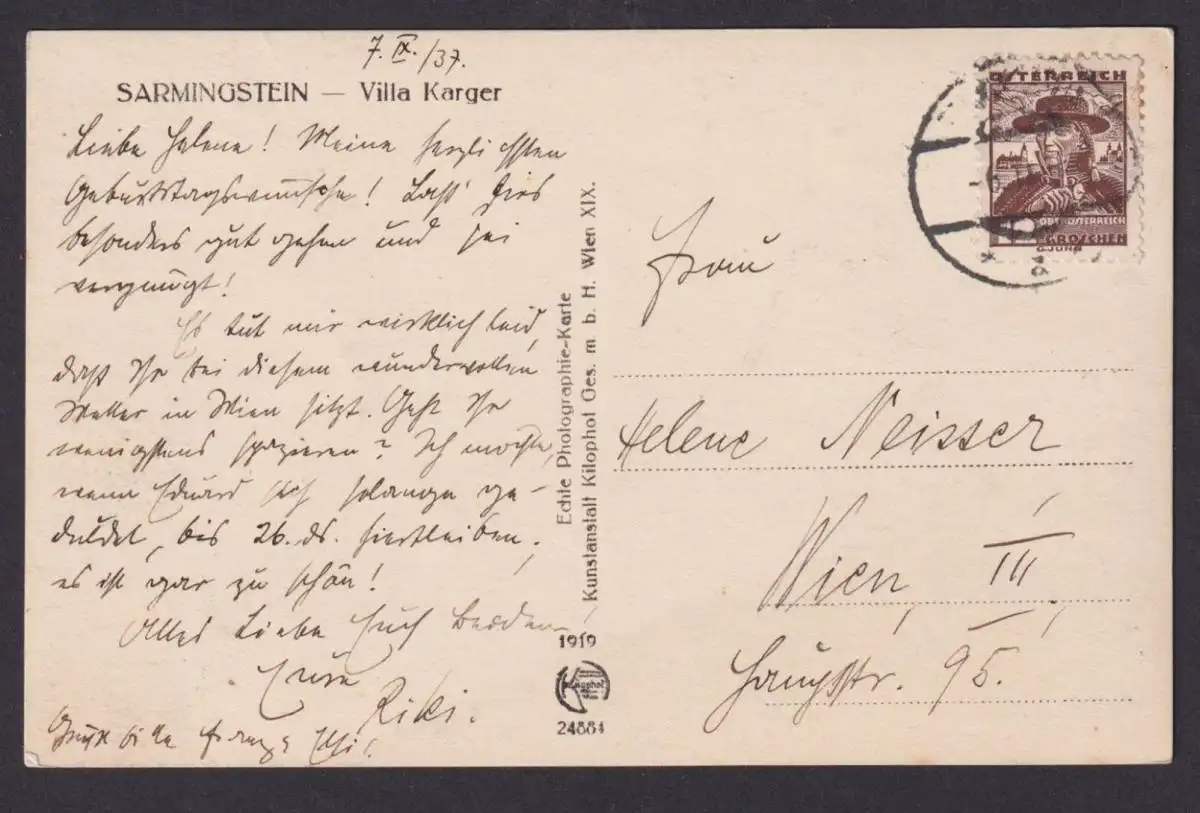 7.IX./37.
SARMINGSTEIN — Villa Karger
Liebe Helene! Meine herzlichsten
Geburtstagswünsche! Lass' Dir's
besonders gut gehen und sei
vergnügt!
Es tut mir wirklich leid,
dass Ihr bei diesem wundervollen
Wetter in Wien sitzt. Geht Ihr
wenigstens spazieren? Ich möchte,
wenn Eduard sich solange ge-
duldet, bis 26. ds. hierbleiben.
es ist gar zu schön!
Alles Liebe Euch Beiden!
Eure
Riki.
bitte
Echte Photographie-Karte
Kunstanstalt Kilophot Ges. m. b. H. Wien XIX.
1919
Kilophot
24881
ÖSTERREICH
OBERÖSTERREICH
GROSCHEN
Frau
Helene Neisser
Wien, III
Hauptstr. 95.